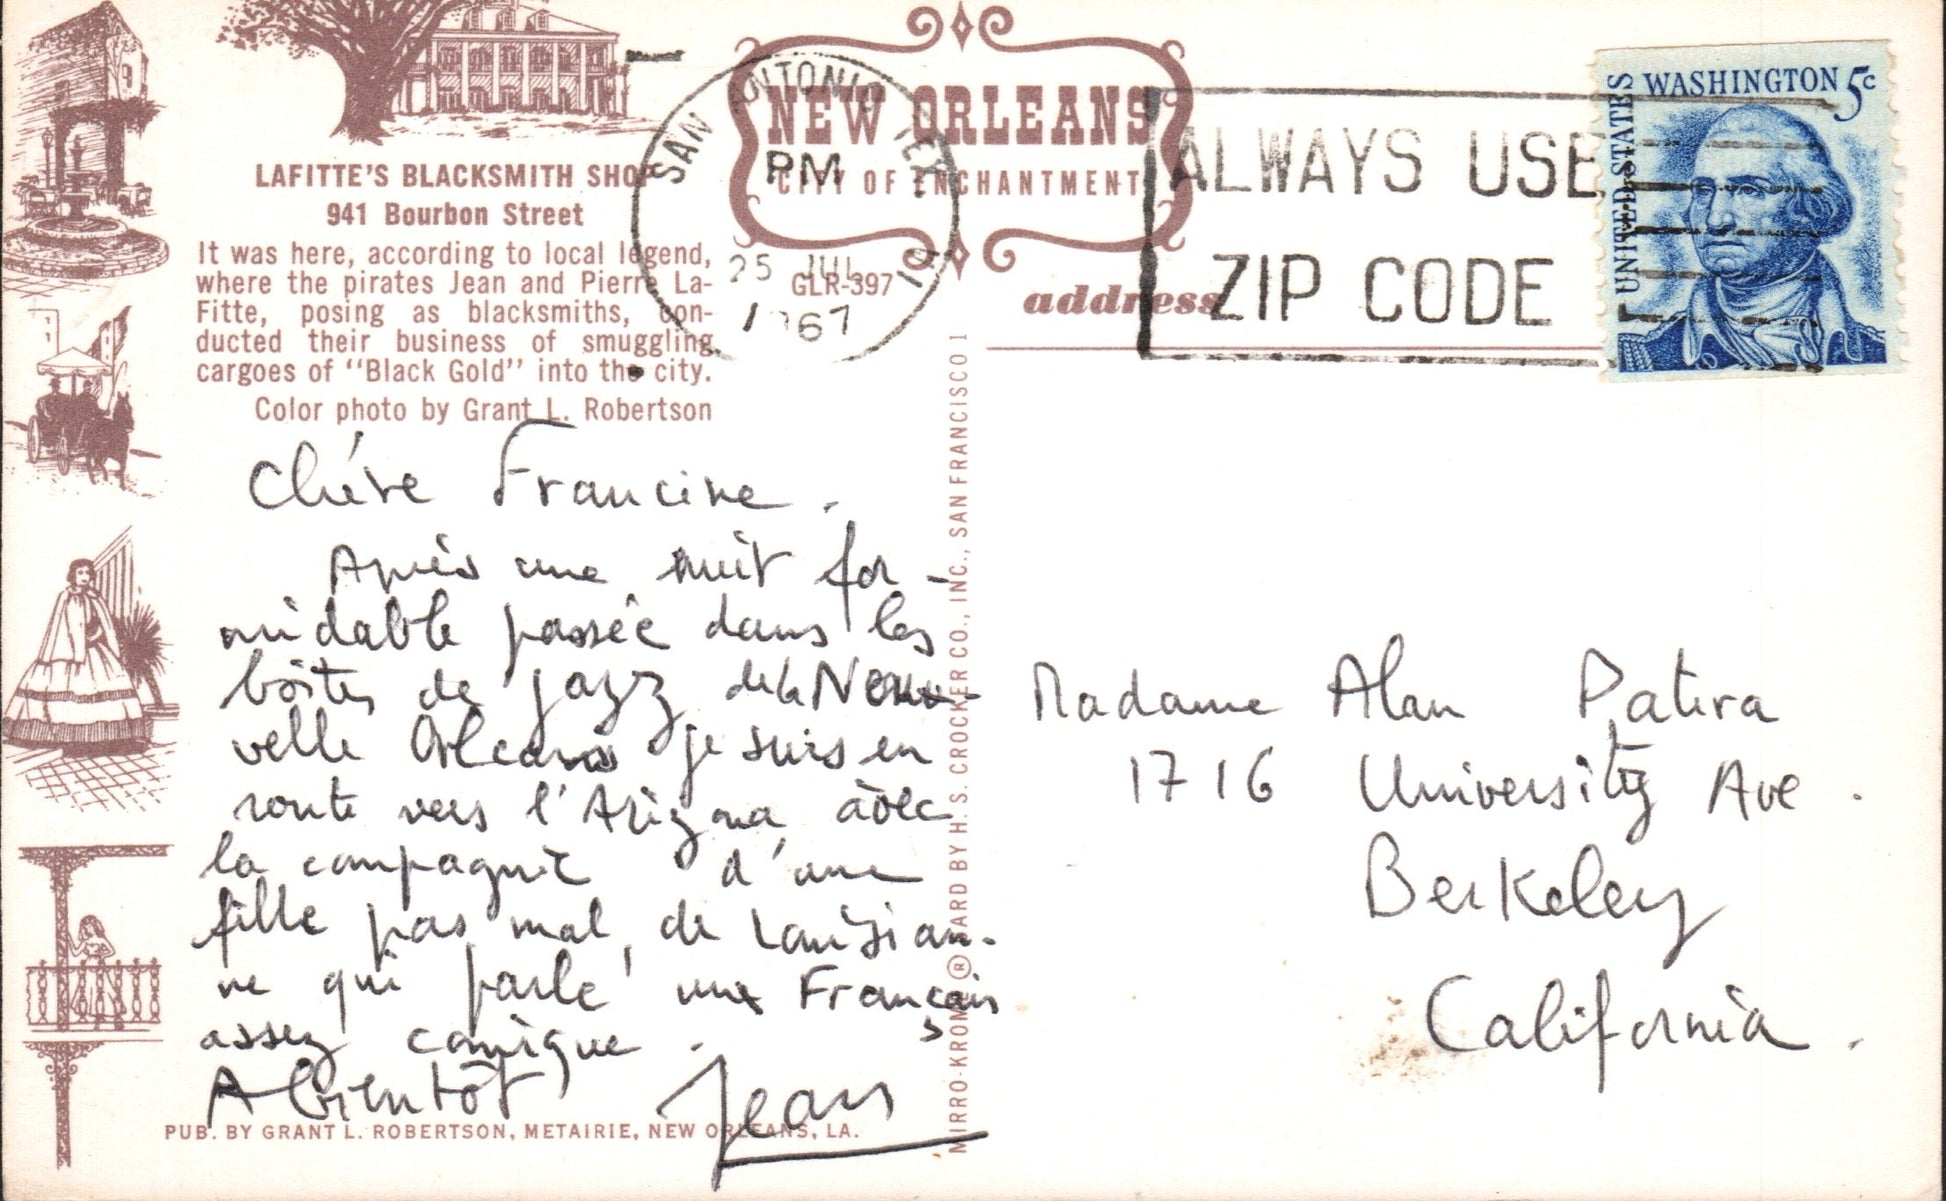 LAFITTE'S BLACKSMITH SHOP
941 Bourbon Street
It was here, according to local legend,
where the pirates Jean and Pierre La-
Fitte, posing as blacksmiths, con-
ducted their business of smuggling
cargoes of "Black Gold" into the city.
Color photo by Grant L. Robertson
NEW ORLEANS
CITY OF ENCHANTMENT
GLR-397
SAN ANTONIO TEX
PM
25 JUL
1967
ALWAYS USE
ZIP CODE
UNITED STATES
WASHINGTON 5c
address
Chére Francine.
Après une nuit for-
midable passée dans les
boîtes de jazz de la Nou-
velle Orleans je suis en
route vers l'Arizona avec
la compagnie d'une
fille pas mal, de Louisian-
ne qui parle un Français
assez comique.
A bientôt
Jean
Madame Alan
1716 University Ave.
Berkeley
California.
MIRRO-KROME ® CARD BY H. S. CROCKER CO., INC., SAN FRANCISCO 1
PUB. BY GRANT L. ROBERTSON, METAIRIE, NEW ORLEANS, LA.